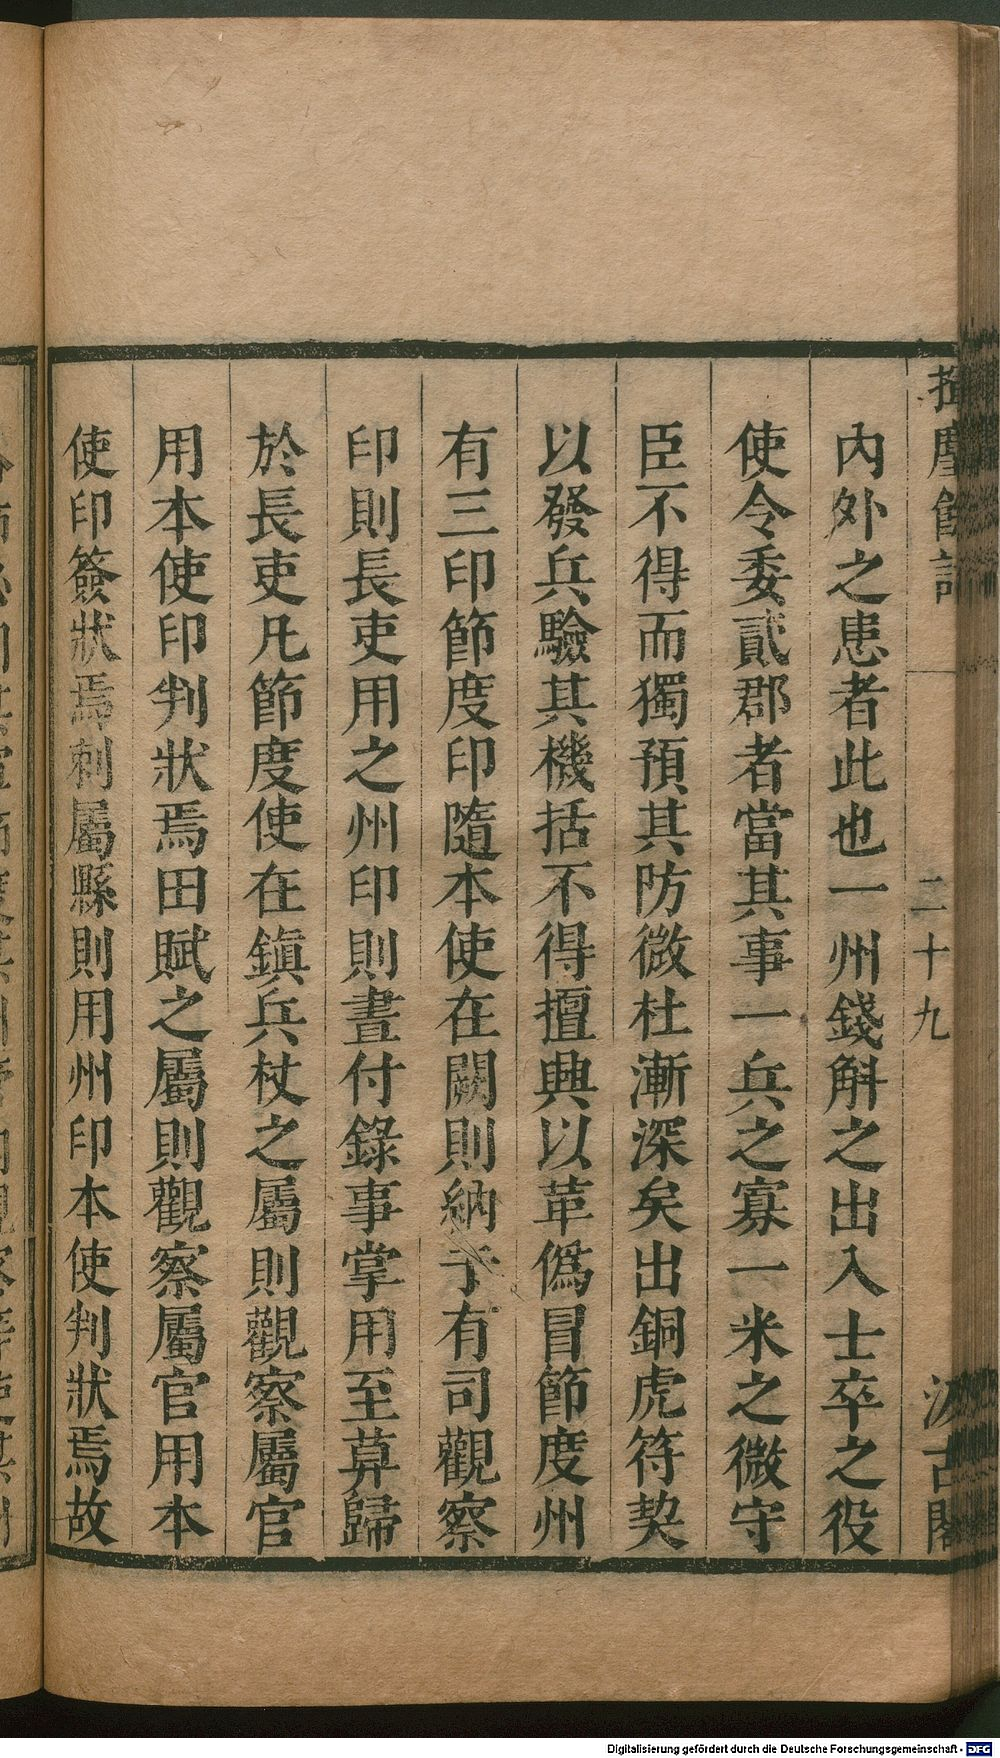 揮麈餘話
二十九
汲古閣
內外之患者此也一州錢斛之出入士卒之役
使令委貳郡者當其事一兵之寡一米之微守
臣不得而獨預其防微杜漸深矣出銅虎符契
以發兵驗其機括不得擅興以革僞冒節度州
有三印節度印隨本使在闕則納于有司觀察
印則長吏用之州印則晝付錄事掌用至莫歸
於長吏凡節度使在鎮兵杖之屬則觀察屬官
用本使印判狀焉田賦之屬則觀察屬官用本
使印簽狀焉刺屬縣則用州印本使判狀焉故
Digitalisierung gefördert durch die Deutsche Forschungsgemeinschaft - DFG